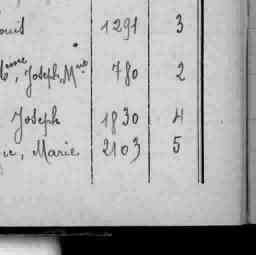 Louis 1291 3
Joseph Mie 780 2
Joseph 1830 4
Marie 2103 5